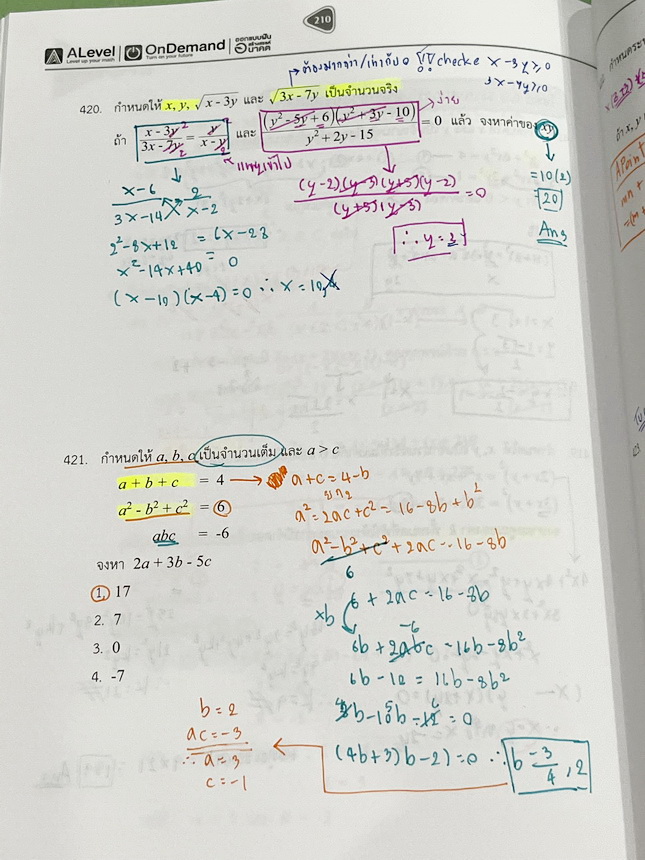 210
ALevel Level up your math OnDemand Turn on your future ออกแบบฝัน สร้างสรรค์อนาคต
ต้องมากกว่า/เท่ากับ 0 checke x - 3y ≥ 0
3x - 7y ≥ 0
420. กำหนดให้ x, y, √(x - 3y) และ √(3x - 7y) เป็นจำนวนจริง
ง่าย
ถ้า (x - 3y)/(3x - 7y) = y/(x - y) และ ((y² - 5y + 6)(y² + 3y - 10))/(y² + 2y - 15) = 0 แล้ว จงหาค่าของ xy
แทนเข้าไป
= 10(2)
= 20
Ans
((y-2)(y-3)(y+5)(y-2))/((y+5)(y-3)) = 0
∴ y = 2
(x-6)/(3x-14) 2/(x-2)
x² - 14x + 40 = 0
(x-10)(x-4) = 0 ∴ x = 10, 4
421. กำหนดให้ a, b, c เป็นจำนวนเต็ม และ a > c
a + b + c = 4 → a + c = 4 - b
a² - b² + c² = 6
a² + 2ac + c² = 16 - 8b + b²
abc = -6
a² - b² + c² + 2ac = 16 - 8b
6
จงหา 2a + 3b - 5c
1. 17
2. 7
3. 0
4. -7
6 + 2ac = 16 - 8b
xb
-6
6b + 2abc = 16b - 8b²
6b - 12 = 16b - 8b²
8b - 10b - 12 = 0
(4b+3)(b-2) = 0 ∴ b = -3/4, 2
b = 2
ac = -3
∴ a = 3
c = -1